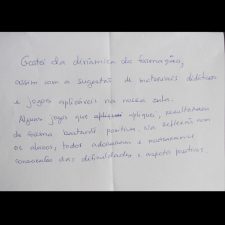 Gostei da dinâmica da formação,
assim com a sugestão de materiais didáticos
e jogos aplicáveis na nossa sala.
Alguns jogos que apliquei apliquei, resultaram
de forma bastante positiva. Na reflexão com
os alunos, todos adoraram e mostraram-se
conscientes das dificuldades e aspetos positivos.